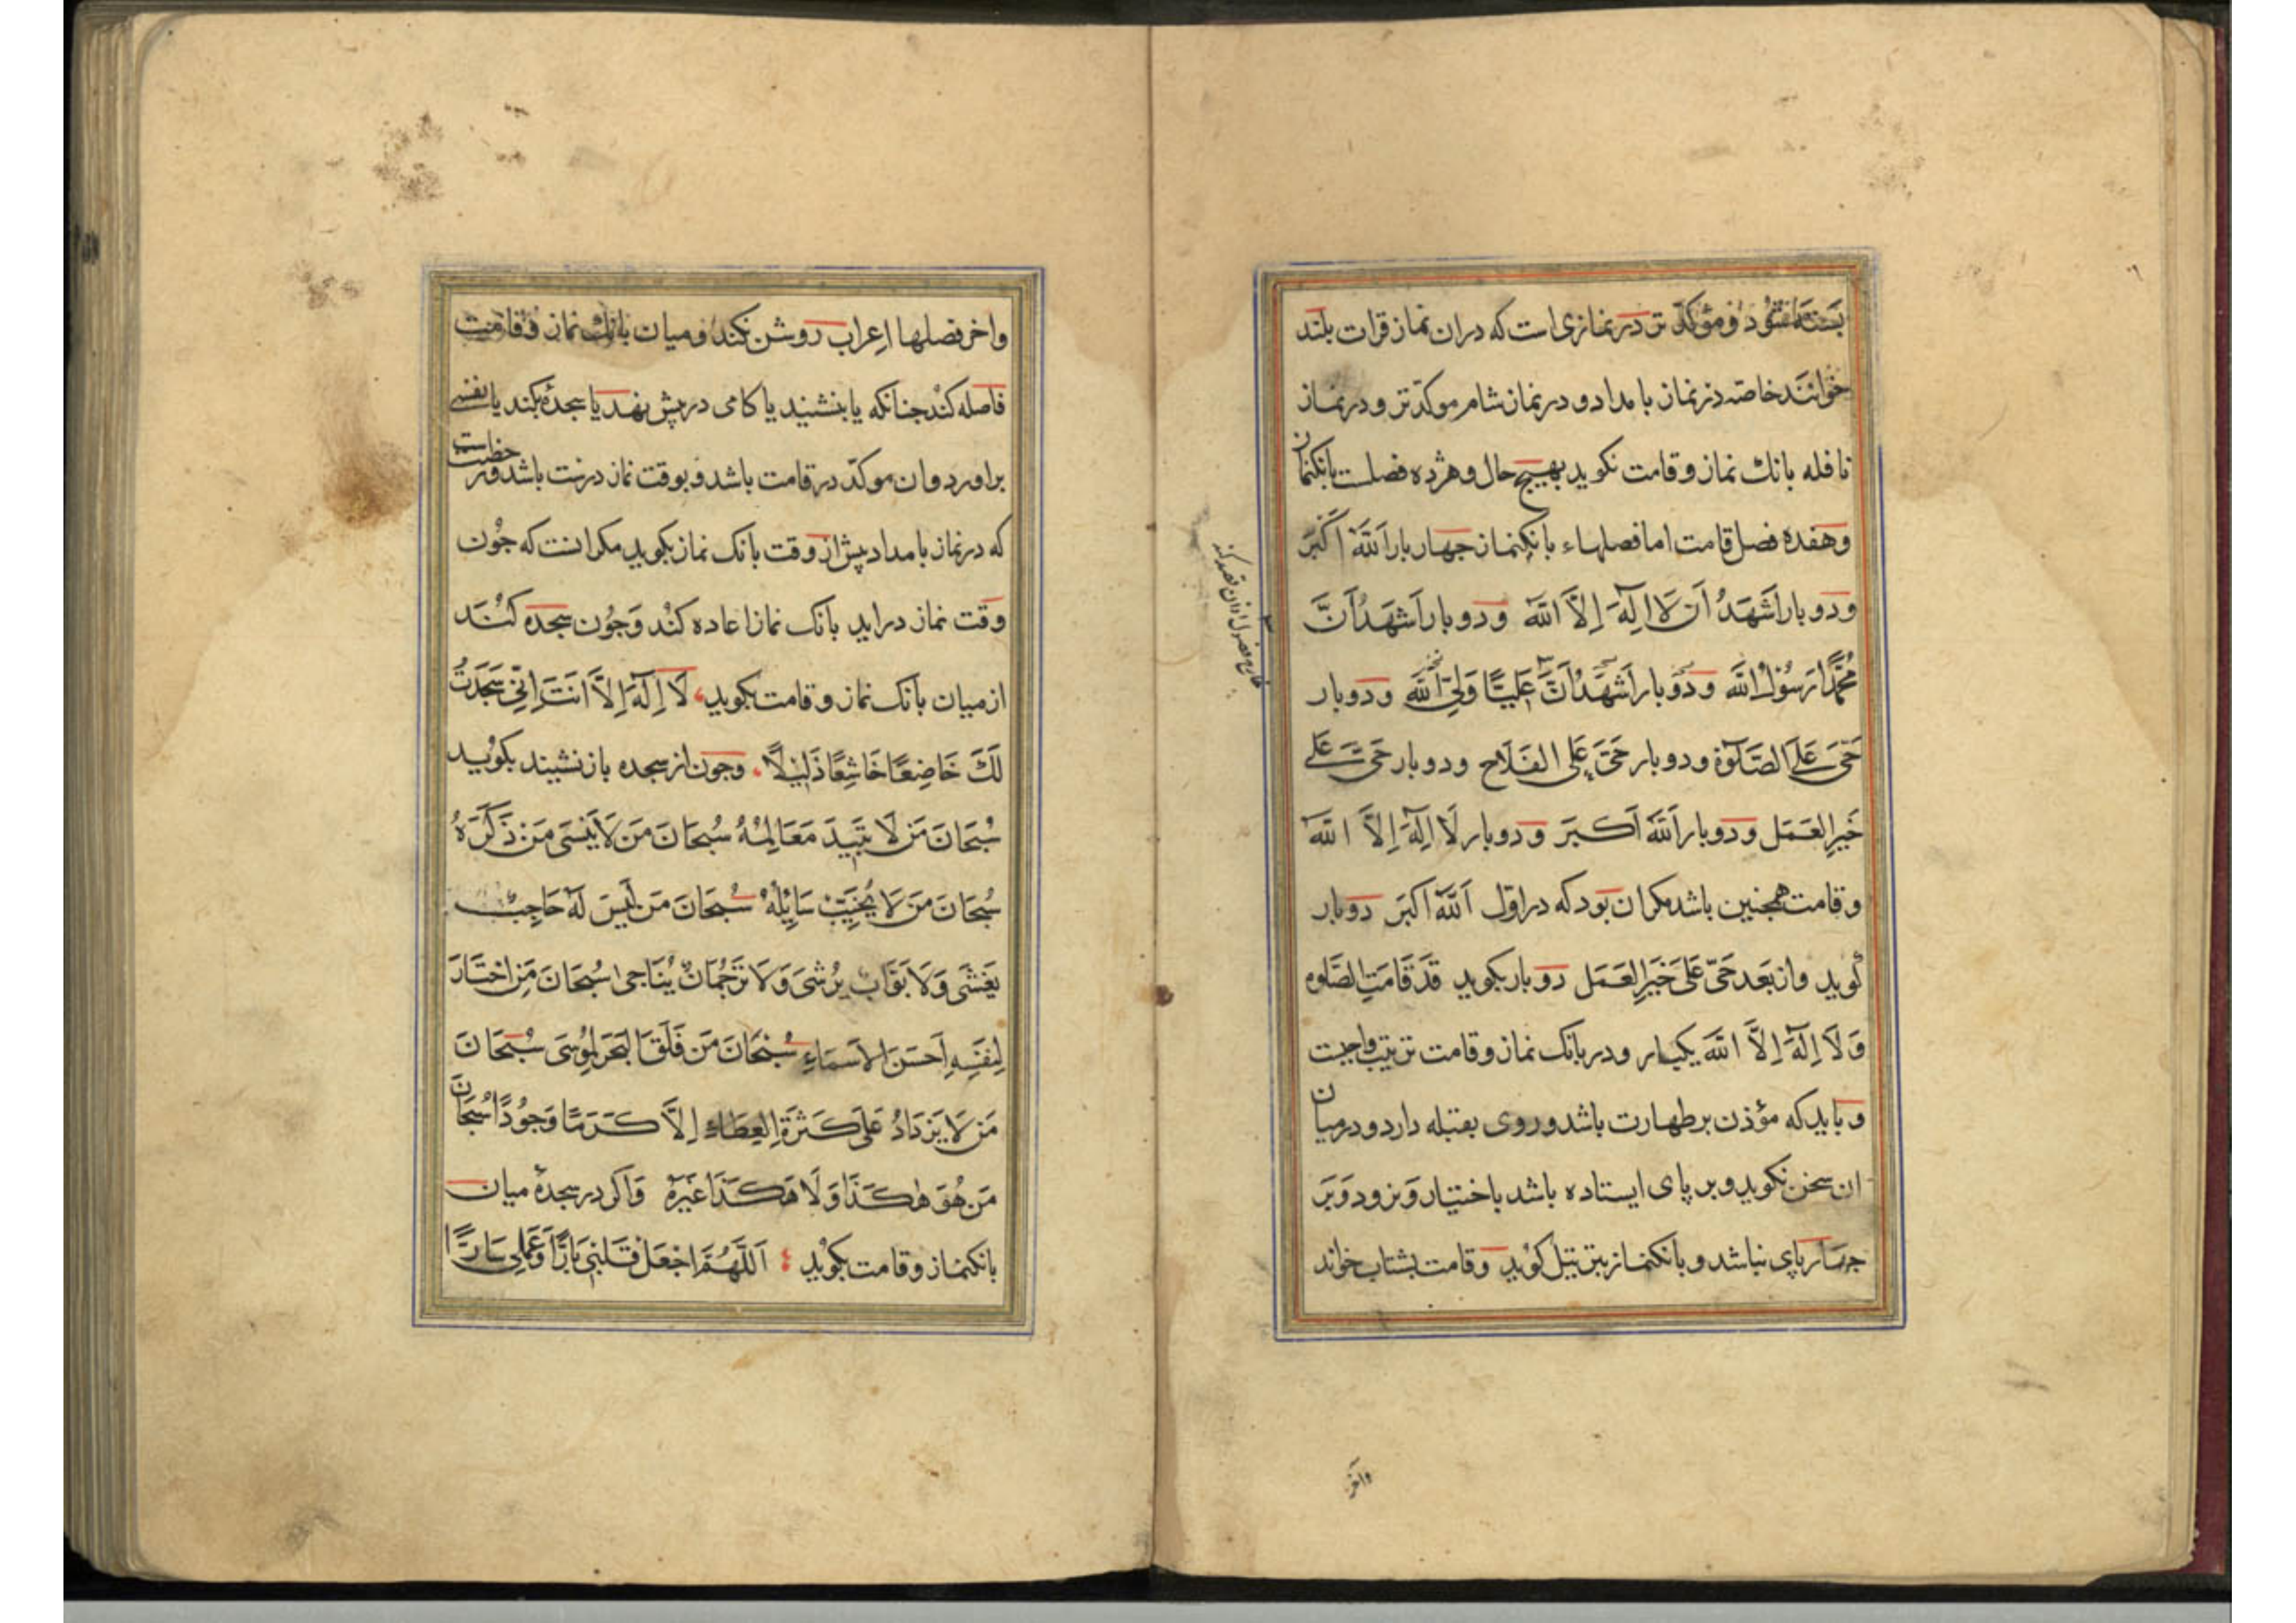 بسته شود و مؤکد تر در نمازی است که دران نماز قرات بلند
خوانند خاصه در نماز بامداد و در نماز شام موکد تر و در نماز
نافله بانك نماز و قامت نکوید بهیچ حال و هژده فصلست بانکنماز
و هفده فصل قامت اما فصلهاء بانکنماز جهار بار اَللّٰهُ اَکْبَر
و دو بار اَشْهَدُ اَن لَا اِلٰهَ اِلَّا اللّٰه و دو بار اَشْهَدُ اَنَّ
مُحَمَّدًا رَسُوْلُ اللّٰه و دو بار اَشْهَدُ اَنَّ عَلِیًّا وَلِیُّ اللّٰه و دو بار
حَیَّ عَلَی الصَّلٰوة و دو بار حَیَّ عَلَی الفَلَاح و دو بار حَیَّ عَلٰی
خَیرِ العَمَل و دو بار اَللّٰهُ اَکبَر و دو بار لَا اِلٰهَ اِلَّا اللّٰه
و قامت همجنین باشد مکر ان بود که در اوّل اَللّٰهُ اکبَر دو بار
کوید و از بعد حَیَّ عَلٰی خَیرِ العَمَل دو بار بکوید قَد قَامَتِ الصَّلوه
وَلَا اِلٰهَ اِلَّا اللّٰه یکبار و در بانک نماز و قامت ترتیب واجبت
و باید که مؤذن بر طهارت باشد و روی بقبله دارد و در میان
ان سخن نکوید و بر پای ایستاده باشد باختیار و بر ود و بر
جهار پای نباشد و بانکنماز بترتیل کوید و قامت بشتاب خواند
واخر
واخر فصلها اعراب روشن نکند و میان بانك نماز و قامت
فاصله کند جنانکه یا بنشیند یا کامی در پیش نهد یا سجدۀ بکند یا نفسی
براورد و ان موکدّ در قامت باشد و بوقت نماز درست باشد و رخصت
که در نماز بامداد پیش از وقت بانک نماز بکوید مکر انست که جون
وقت نماز دراید بانک نماز اعاده کند و جون سجده کنند
از میان بانک نماز و قامت بکوید، لَا اِلٰهَ اِلَّا اَنتَ اِنِّی سَجَدتُ
لَكَ خَاضِعًا خَاشِعًا ذَلِیْلًا. و جون از سجده باز نشیند بکوید
سُبْحَانَ مَن لَا تَبِیدُ مَعَالِمُهُ سُبحَانَ مَن لَا یَنسَی مَن ذَکَرَهُ
سُبحَانَ مَن لَا یُخَیِّبُ سَائِلَهُ سُبحَانَ مَن لَیسَ لَهُ حَاجِبٌ
یَغشَی وَلَا بَوَّابٌ یُرشَی وَلَا تَرجُمَانٌ یُنَاجی سُبحَانَ مَنِ اختَارَ
لِنَفسِهِ اَحسَنَ الاَسمَاءِ سُبحَانَ مَن فَلَقَ البَحرَ لِمُوسَی سُبْحَانَ
مَن لَا یَزدَادُ عَلَی کَثرَةِ العَطَاءِ اِلَّا کَرَمًا وَجُودًا سُبحَانَ
مَن هُوَ هٰکَذَا وَلَا هٰکَذَا غَیرُهُ و اکر در سجدۀ میان
بانکنماز و قامت بکوید اَللّٰهُمَّ اجعَل قَلبِی بَارًّا وَعَمَلِی سَارًّا